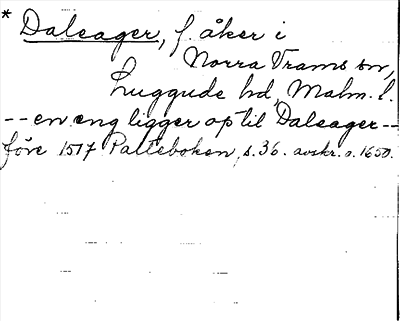 * Dalsager, f. åker i
Norra Vrams sn,
Luggude hd, Malm. l.
-- en eng ligger op til Dalsager --
före 1517 Palteboken, s. 36. avskr. o. 1650.